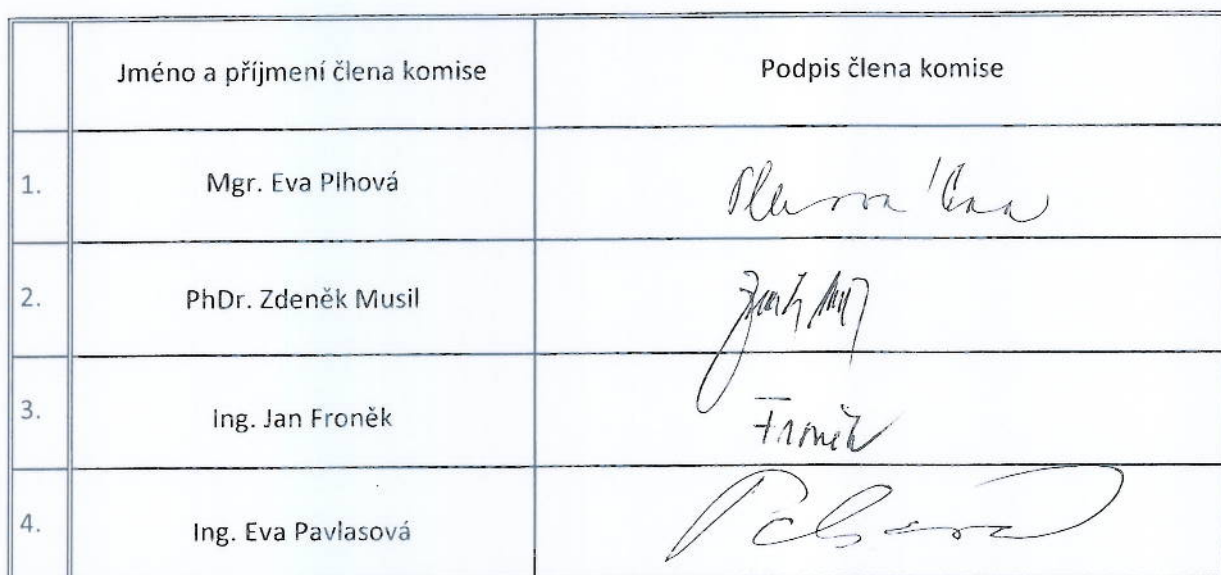 Jméno a příjmení člena komise Podpis člena komise
1. Mgr. Eva Plhová
2. PhDr. Zdeněk Musil
3. Ing. Jan Froněk Froněk
4. Ing. Eva Pavlasová